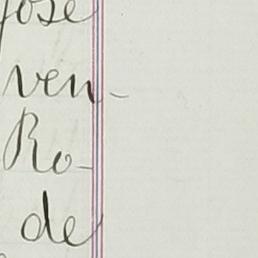 José
ven-
Ro-
de